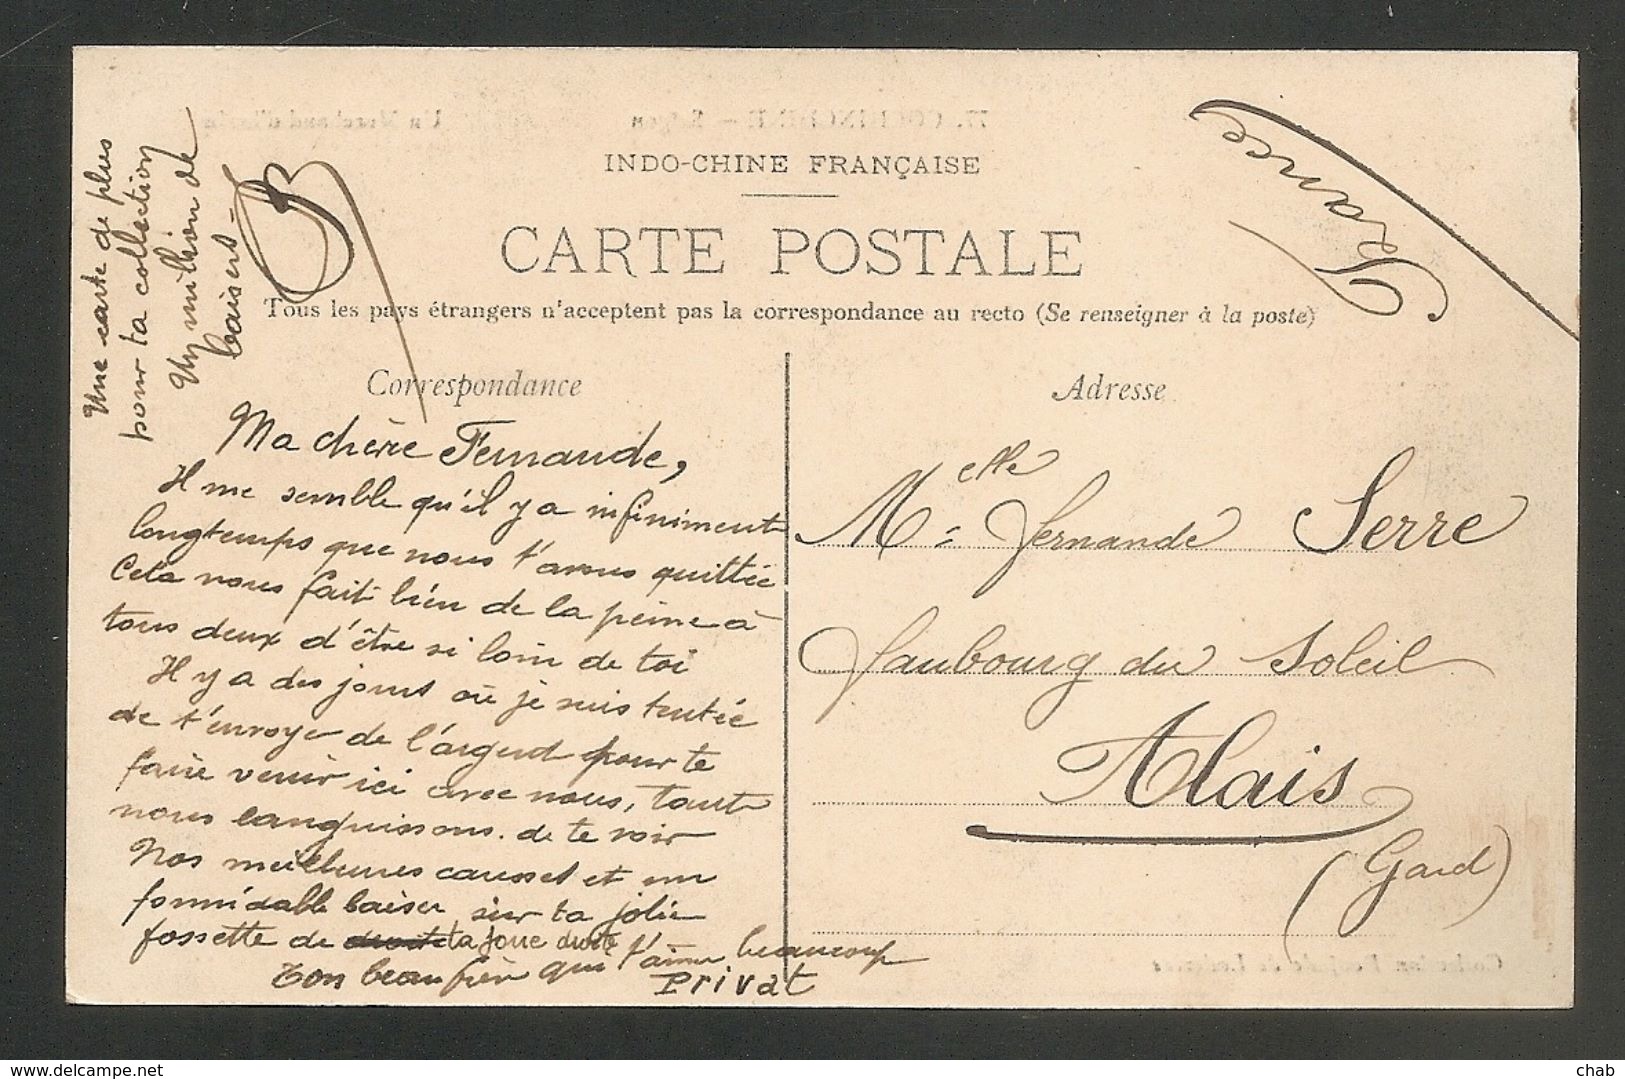 Une carte de plus
pour ta collection
Un million de
baisers
France
INDO-CHINE FRANÇAISE
CARTE POSTALE
Tous les pays étrangers n'acceptent pas la correspondance au recto (Se renseigner à la poste)
Correspondance
Ma chère Fernande,
Il me semble qu'il y a infiniment
longtemps que nous t'avons quittée
Cela nous fait bien de la peine à
tous deux d'être si loin de toi
Il y a des jours où je suis tentée
de t'envoyer de l'argent pour te
faire venir ici avec nous, tant
nous languissons de te voir
Nos meilleures causses et un
formidable baiser sur ta jolie
fossette de droite ta joue droite
Ton beau frère qui t'aime beaucoup
Privat
Adresse
Melle Fernande Serre
faubourg du Soleil
Alais
(Gard)
www.delcampe.net
chab